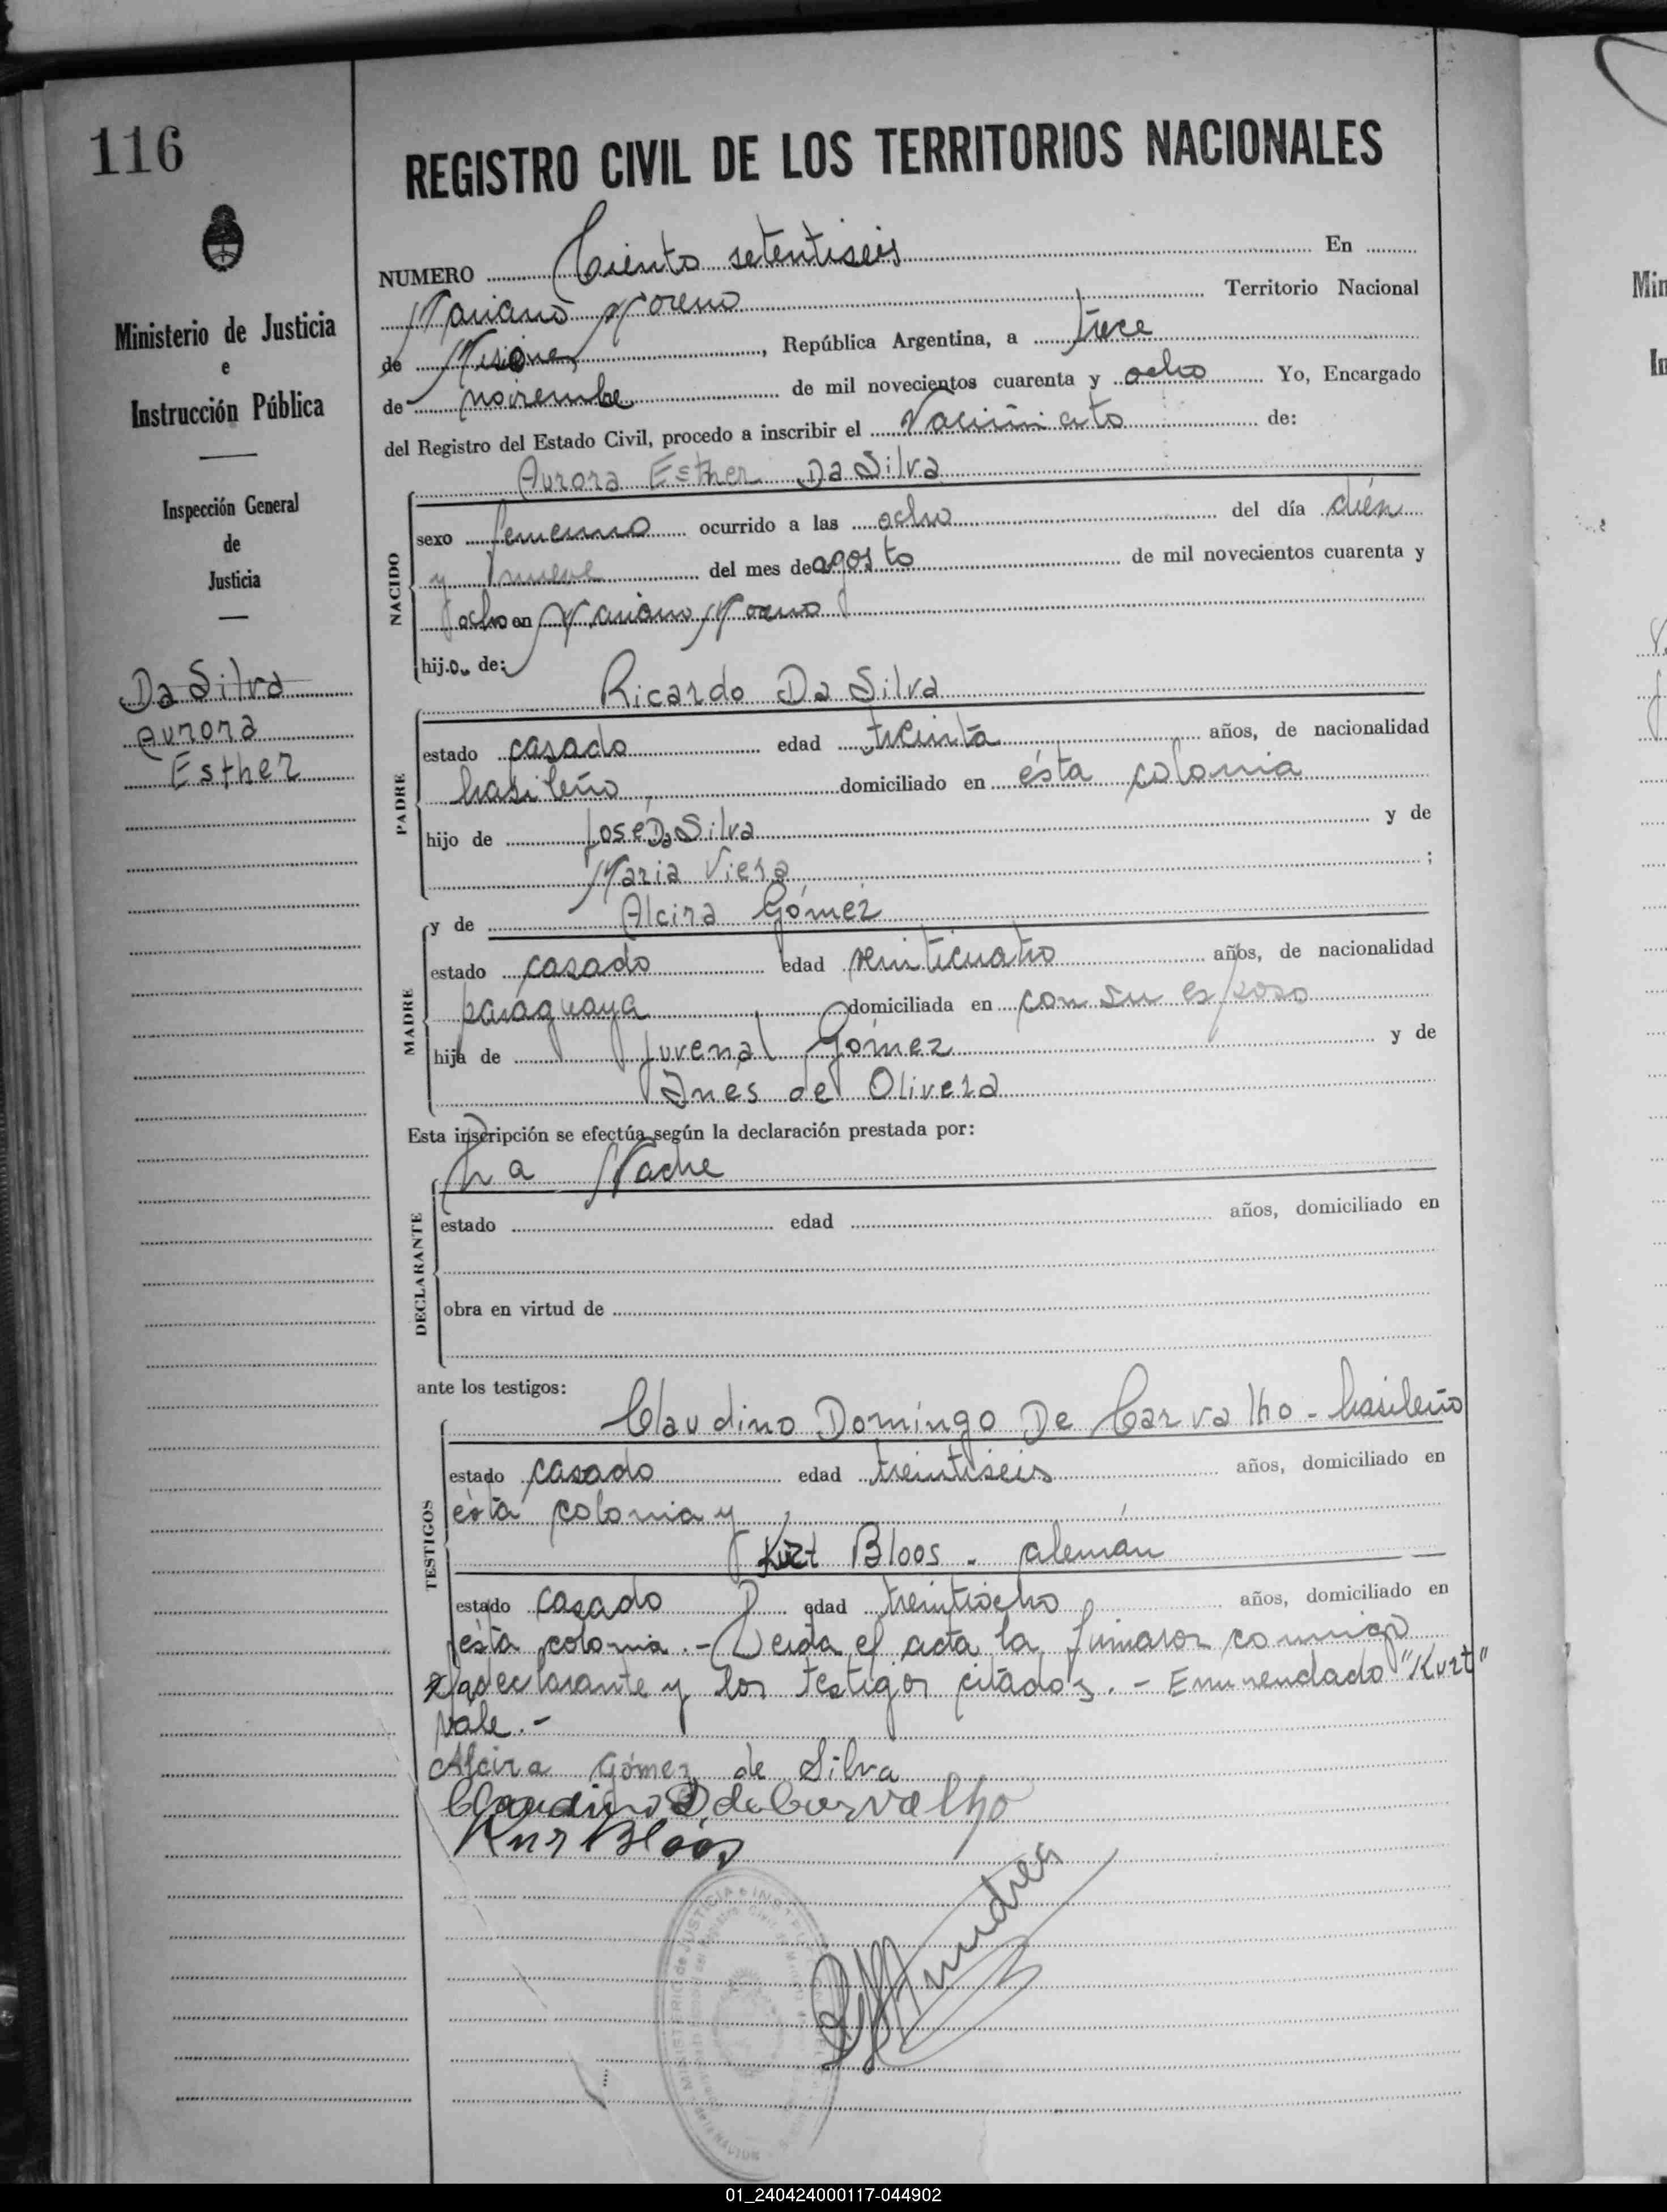 116
REGISTRO CIVIL DE LOS TERRITORIOS NACIONALES
Ministerio de Justicia
e
Instrucción Pública
Inspección General
de
Justicia
Da Silva
Aurora
Esther
NUMERO Ciento setentiseis En
Mariano Moreno Territorio Nacional
de Misiones, República Argentina, a trece
de noviembre de mil novecientos cuarenta y ocho Yo, Encargado
del Registro del Estado Civil, procedo a inscribir el Nacimiento de:
Aurora Esther Da Silva
NACIDO
sexo femenino ocurrido a las ocho del día diéz
y nueve del mes de agosto de mil novecientos cuarenta y
ocho en Mariano Moreno
hijo de:
Ricardo Da Silva
PADRE
estado casado edad treinta años, de nacionalidad
brasileño domiciliado en ésta colonia
hijo de José Da Silva y de
Maria Viera ;
y de Alcira Gómez
MADRE
estado casado edad veinticuatro años, de nacionalidad
paraguaya domiciliada en con su esposo
hija de Juvenal Gómez y de
Ines de Olivera
Esta inscripción se efectúa según la declaración prestada por:
La Madre
DECLARANTE
estado edad años, domiciliado en
obra en virtud de
ante los testigos:
Claudino Domingo De Carvalho - brasileño
TESTIGOS
estado casado edad treintiseis años, domiciliado en
ésta colonia y
Kurt Bloos - alemán
estado casado edad treintiocho años, domiciliado en
ésta colonia.- Leida el acta la firmaron conmigo
la declarante y los testigos citados.- Enmendado "Kurt"
Vale.-
Alcira Gómez de Silva
Claudino D de Carvalho
Kurt Bloos
MINISTERIO de JUSTICIA
01_240424000117-044902